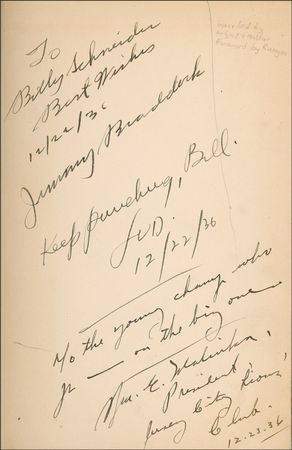 To
Billy Schneider
Best Wishes
12/22/36
Jimmy Braddock
Keep punching, Bill.
12/22/36
To the young champ who
on the big one
Wm. E.
President,
Jersey City Lions'
Club.
12.23.36
Foreword by Runyon